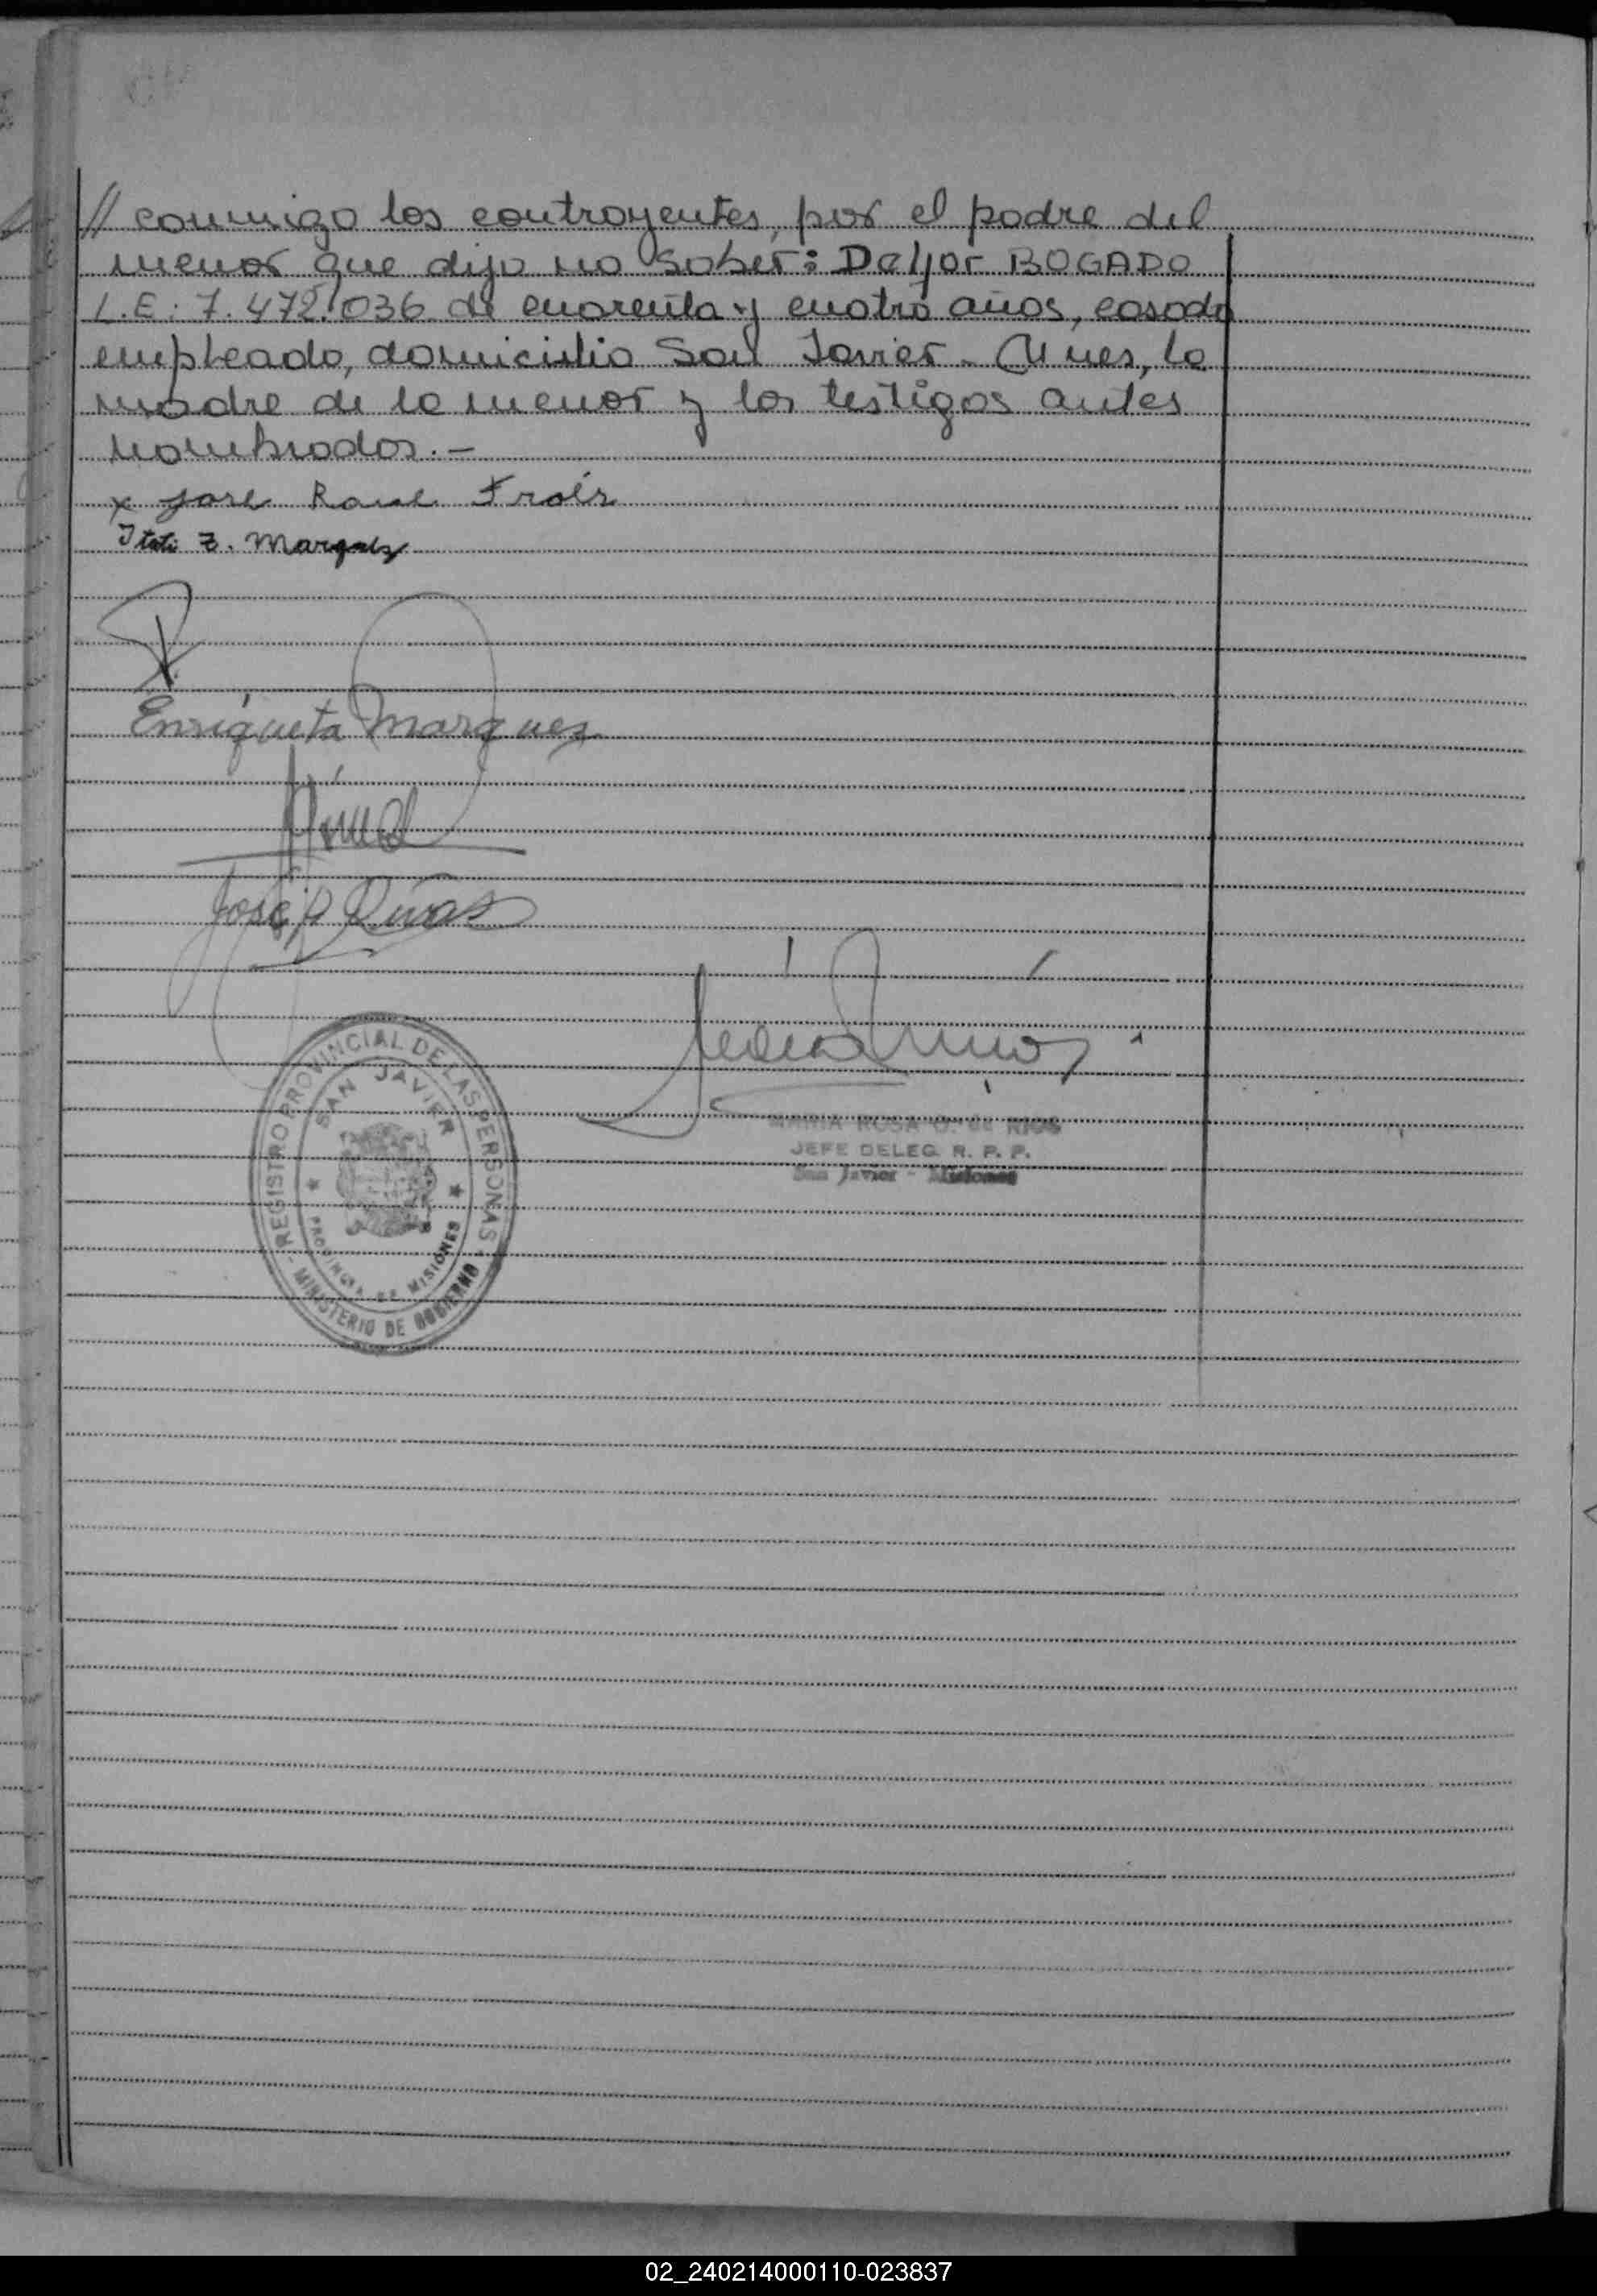 // conmigo los contrayentes, por el padre del
menor que dijo no saber: Delfor BOGADO
L.E: 7.472.036 de cuarenta y cuatro años, casado
empleado, domicilio San Javier - Mnes, la
madre de la menor y los testigos antes
nombrados.-
x Jose Raul Frois
Itati Z. Marques
Enriqueta Marquez
José Rivas
REGISTRO PROVINCIAL DE LAS PERSONAS
SAN JAVIER
PROVINCIA DE MISIONES
MINISTERIO DE GOBIERNO
MARIA ROSA D. de RIOS
JEFE DELEG. R. P. P.
San Javier - Misiones
02_240214000110-023837